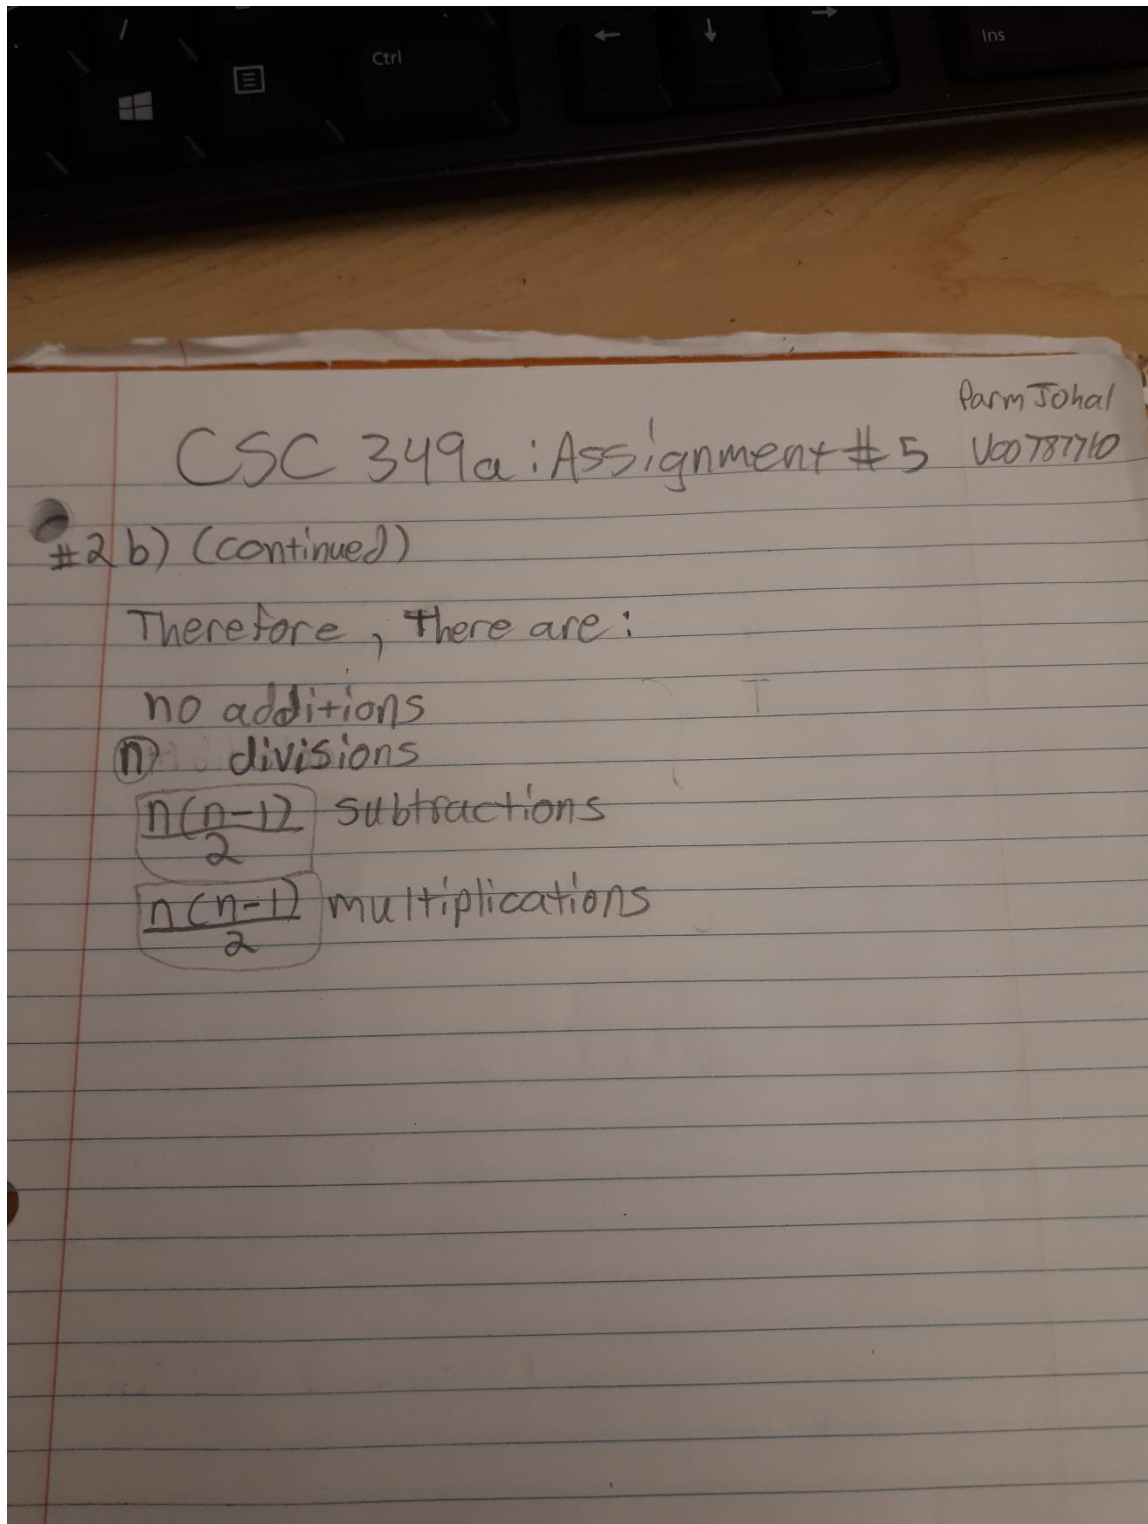 /
Ctrl
←
↓
→
Ins
Parm Johal
CSC 349a: Assignment #5
V00787710
#2 b) (continued)
Therefore, there are:
no additions
n divisions
n(n-1)/2 subtractions
n(n-1)/2 multiplications